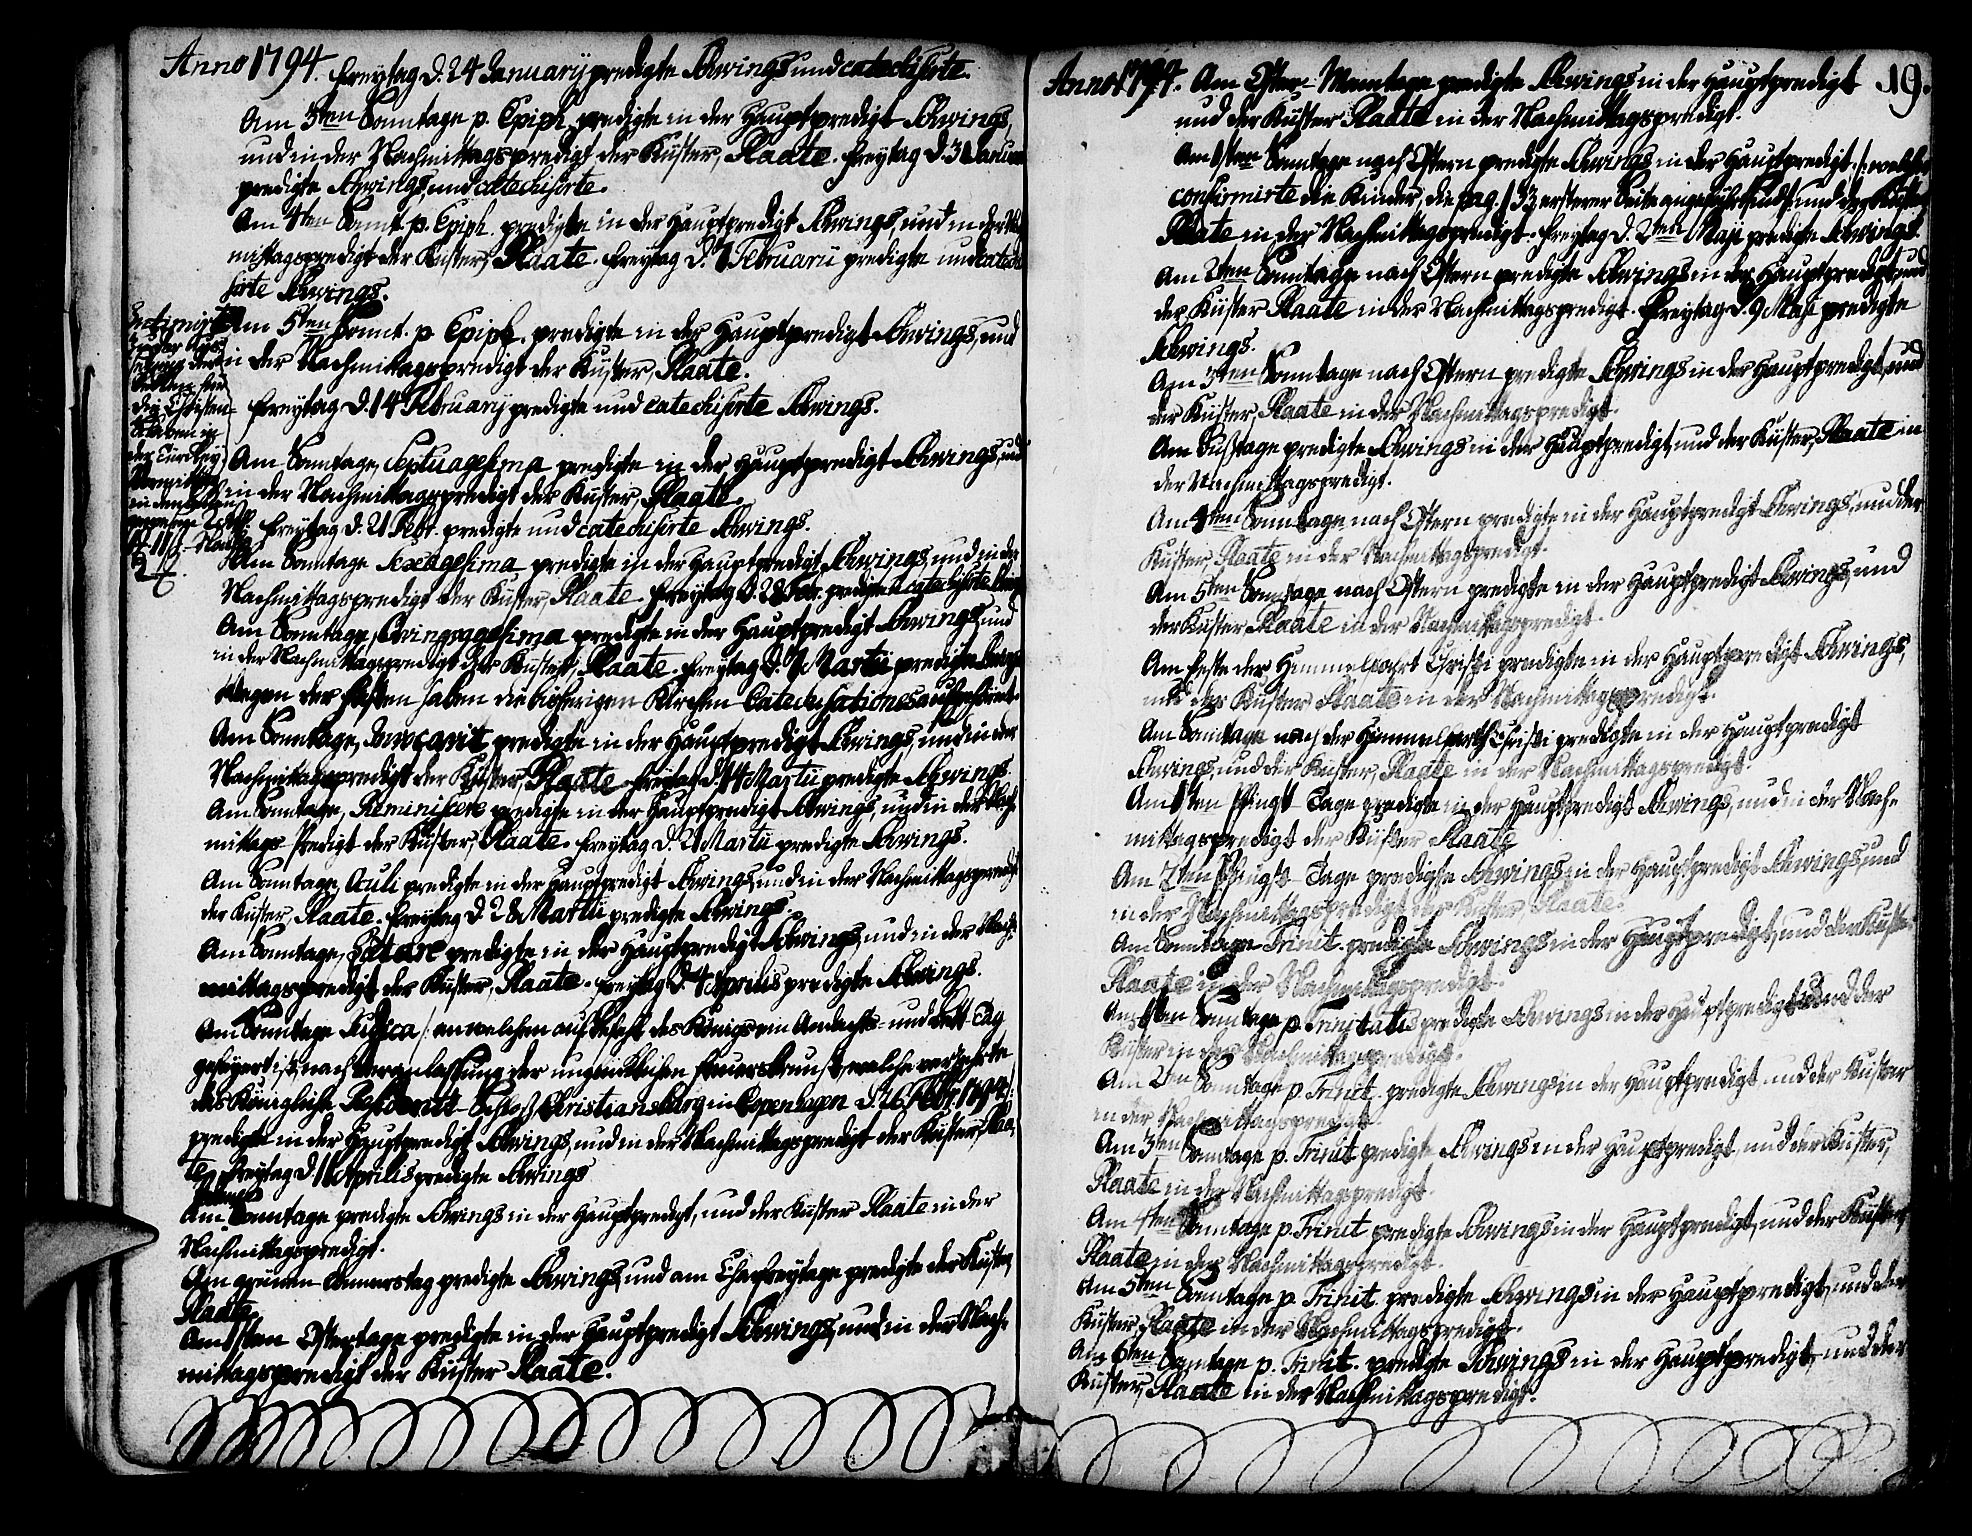 Anno 1794. Freytag d. 24 January predigte Schwings und catechisirte.
Am 3ten Sonntage p. Epiph. predigte in der Hauptpredigt Schwings,
und in der Nachmittagspredigt der Küster, Plaate. Freytag d. 31 Januar
predigte Schwings, und catechisirte.
Am 4ten Sonnt. p. Epiph. predigte in der Hauptpredigt Schwings, und in der Nach
mittagspredigt der Küster, Plaate. Freytag d. 7 Februarii predigte und catechi
sirte Schwings.
Am 5ten Sonnt. p Epiph. predigte in der Hauptpredigt Schwings, und
in der Nachmittagspredigt der Küster, Plaate.
Freytag d. 14 February predigte und catechisirte Schwings.
Am Sonntage, Septuagesima predigte in der Hauptpredigt Schwings, und
in der Nachmittagspredigt der Küster, Plaate.
Freytag d. 21 Febr. predigte und catechisirte Schwings.
Am Sonntage Sexagesima predigte in der Hauptpredigt Schwings, und in der
Nachmittagspredigt der Küster, Plaate. Freytag d. 28 Febr. predigte u catechisirte Schwings
Am Sonntage, Quinquagesima predigte in der Hauptpredigt Schwings, und
in der Nachmittagspredigt der Küster, Plaate. Freytag d. 7 Martii predigte Schwings
Wegen der Fasten haben die bisherigen Kirchen-Catechisationes aufgehöret.
Am Sonntage, Invocavit predigte in der Hauptpredigt Schwings, und in der
Nachmittagspredigt der Küster, Plaate. Freytag d. 14 Martii predigte Schwings.
Am Sonntage, Reminiscere predigte in der Hauptpredigt Schwings, und in der Nach-
mittags Predigt der Küster, Plaate. Freytag d. 21 Martii predigte Schwings.
Am Sonntage, Oculi predigte in der Hauptpredigt Schwings, und in der Nachmittagspredigt
der Küster, Plaate. Freytag d. 28 Martii predigte Schwings.
Am Sonntage, Lätare predigte in der Hauptpredigt Schwings, und in der Nach-
mittagspredigt der Küster, Plaate. Freytag d. 4 Aprilis predigte Schwings.
Am Sonntage Judica /: an welchem auf Befehl des Königs ein Andachts- und Bett-Tag
gefeyert ist, nach Veranlassung der unglücklichen Feuersbrunst, welche verzehrte
das Königliche Residentz-Schloß Christiansburg in Copenhagen d. 26 Febr. 1794:/
predigte in der Hauptpredigt Schwings, und in der Nachmittagspredigt der Küster, Plaa-
te. Freytag d. 11 Aprilis predigte Schwings
Am Palmen Sonntage predigte Schwings in der Hauptpredigt, und der Küster Plaate in der
Nachmittagspredigt.
Am grünen Donnerstag predigte Schwings, und am Charfreytage predigte der Küster,
Plaate.
Am 1sten Ostertage predigte in der Hauptpredigt Schwings, und in der Nach-
mittagspredigt der Küster Plaate.
Anno 1794. Am Oster-Montage predigte Schwings in der Hauptpredigt 19.
und der Küster Plaate in der Nachmittagspredigt.
Am 1sten Sonntage nach Ostern predigte Schwings in der Hauptpredigt /: welcher
confirmirte die Kinder, die pag. 133 ersterer Seite angeführt sind :/ und der Küster
Plaate in der Nachmittagspredigt. Freytag d. 2ten Maji predigte Schwings.
Am 2ten Sonntage nach Ostern predigte Schwings in der Hauptpredigt, und
der Küster Plaate in der Nachmittagspredigt. Freytag d. 9 Maji predigte
Schwings.
Am 3ten Sonntage nach Ostern predigte Schwings in der Hauptpredigt, und
der Küster, Plaate in der Nachmittagspredigt.
Am Bußtage predigte Schwings in der Hauptpredigt, und der Küster, Plaate in
der Nachmittagspredigt.
Am 4ten Sonntage nach Ostern predigte in der Hauptpredigt Schwings, und der
Küster, Plaate in der Nachmittagspredigt.
Am 5ten Sonntage nach Ostern predigte in der Hauptpredigt Schwings, und
der Küster Plaate in der Nachmittagspredigt.
Am Feste der Himmelfahrt Christi predigte in der Hauptpredigt Schwings,
und der Küster Plaate in der Nachmittagspredigt.
Am Sonntage nach der Himmelfarth Christi predigte in der Hauptpredigt
Schwings, und der Küster, Plaate in der Nachmittagspredigt.
Am 1sten Pfingst Tage predigte in der Hauptpredigt Schwings, und in der Nach-
mittagspredigt der Küster Plaate
Am 2ten Pfingst Tage predigte Schwings in der Hauptpredigt Schwings, und
in der Nachmittagspredigt der Küster, Plaate.
Am Sonntage Trinit. predigte Schwings in der Hauptpredigt, und der Küster
Plaate in der Nachmittagspredigt.
Am 1sten Sonntage p. Trinitatis predigte Schwings in der Hauptpredigt und der
Küster in der Nachmittagspredigt.
Am 2ten Sonntage p. Trinit. predigte Schwings in der Hauptpredigt und der Küster
in der Nachmittagspredigt.
Am 3ten Sonntage p. Trinit predigte Schwings in der Hauptpredigt, und der Küster,
Plaate in der Nachmittagspredigt.
Am 4ten Sonntage p. Trinit predigte Schwings in der Hauptpredigt, und der Küster,
Plaate in der Nachmittagspredigt.
Am 5ten Sonntage p. Trinit. predigte Schwings in der Hauptpredigt, und der
Küster, Plaate in der Nachmittagspredigt.
Am 6ten Sonntage p. Trinit. predigte Schwings in der Hauptpredigt, und der
Küster, Plaate in der Nachmittagspredigt.